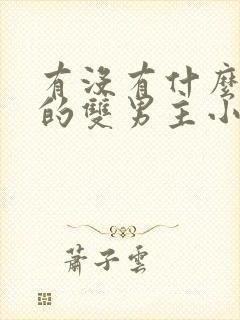 有沒有什麼
的雙男主小
蕭子雲